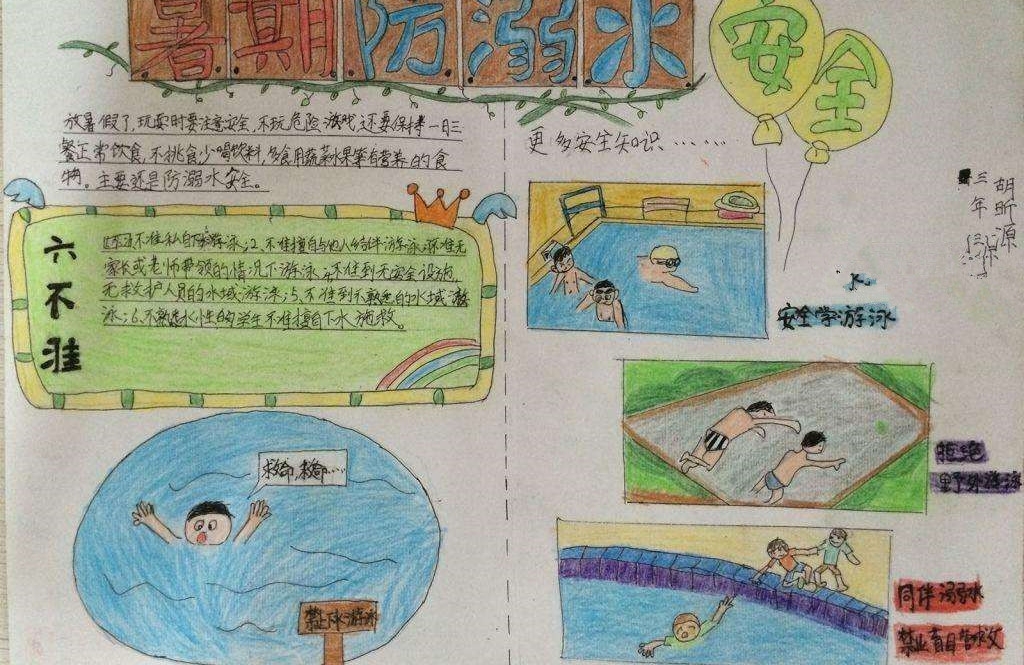 暑期防溺水
安全
放暑假了,玩耍时要注意安全,不玩危险游戏,还要保持一日三
餐正常饮食,不挑食,少喝饮料,多食用蔬菜水果等有营养的食
物。主要还是防溺水安全。
六不准
不准私自下水游泳;2、不准擅自与他人结伴游泳;不准无
家长或老师带领的情况下游泳;不准到无安全设施、
无救护人员的水域游泳;5、不准到不熟悉的水域游
泳;6、不熟悉水性的学生不准擅自下水施救。
救命,救命…
禁止下水游泳
更多安全知识……
安全学游泳
拒绝
野外游泳
同伴溺水
禁止盲目营救
三年
胡昕源